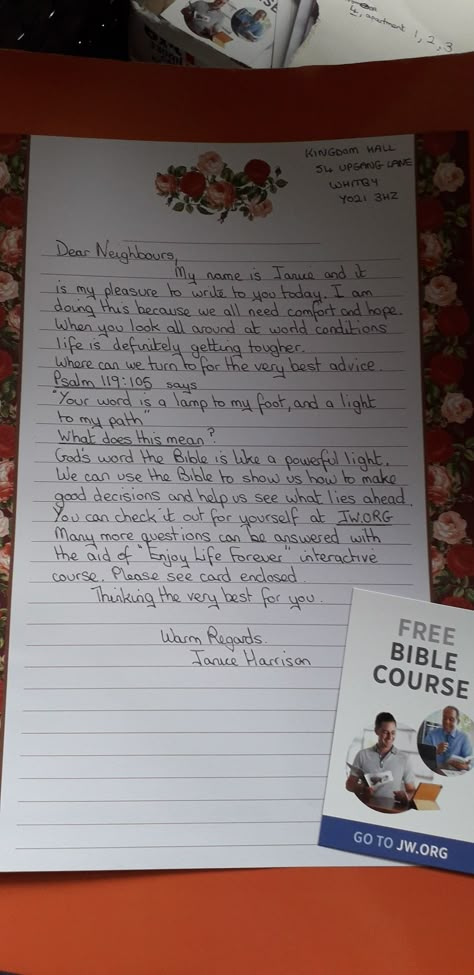 4, apartment 1, 2, 3
KINGDOM HALL
54 UPGANG LANE
WHITBY
YO21 3HZ
Dear Neighbours,
My name is Janice and it
is my pleasure to write to you today. I am
doing this because we all need comfort and hope.
When you look all around at world conditions
life is definitely getting tougher.
Where can we turn to for the very best advice.
Psalm 119:105 says
"Your word is a lamp to my foot, and a light
to my path"
What does this mean?
God's word the Bible is like a powerful light.
We can use the Bible to show us how to make
good decisions and help us see what lies ahead.
You can check it out for yourself at JW.ORG
Many more questions can be answered with
the aid of "Enjoy Life Forever" interactive
course. Please see card enclosed.
Thinking the very best for you.
Warm Regards.
Janice Harrison
FREE
BIBLE
COURSE
GO TO JW.ORG